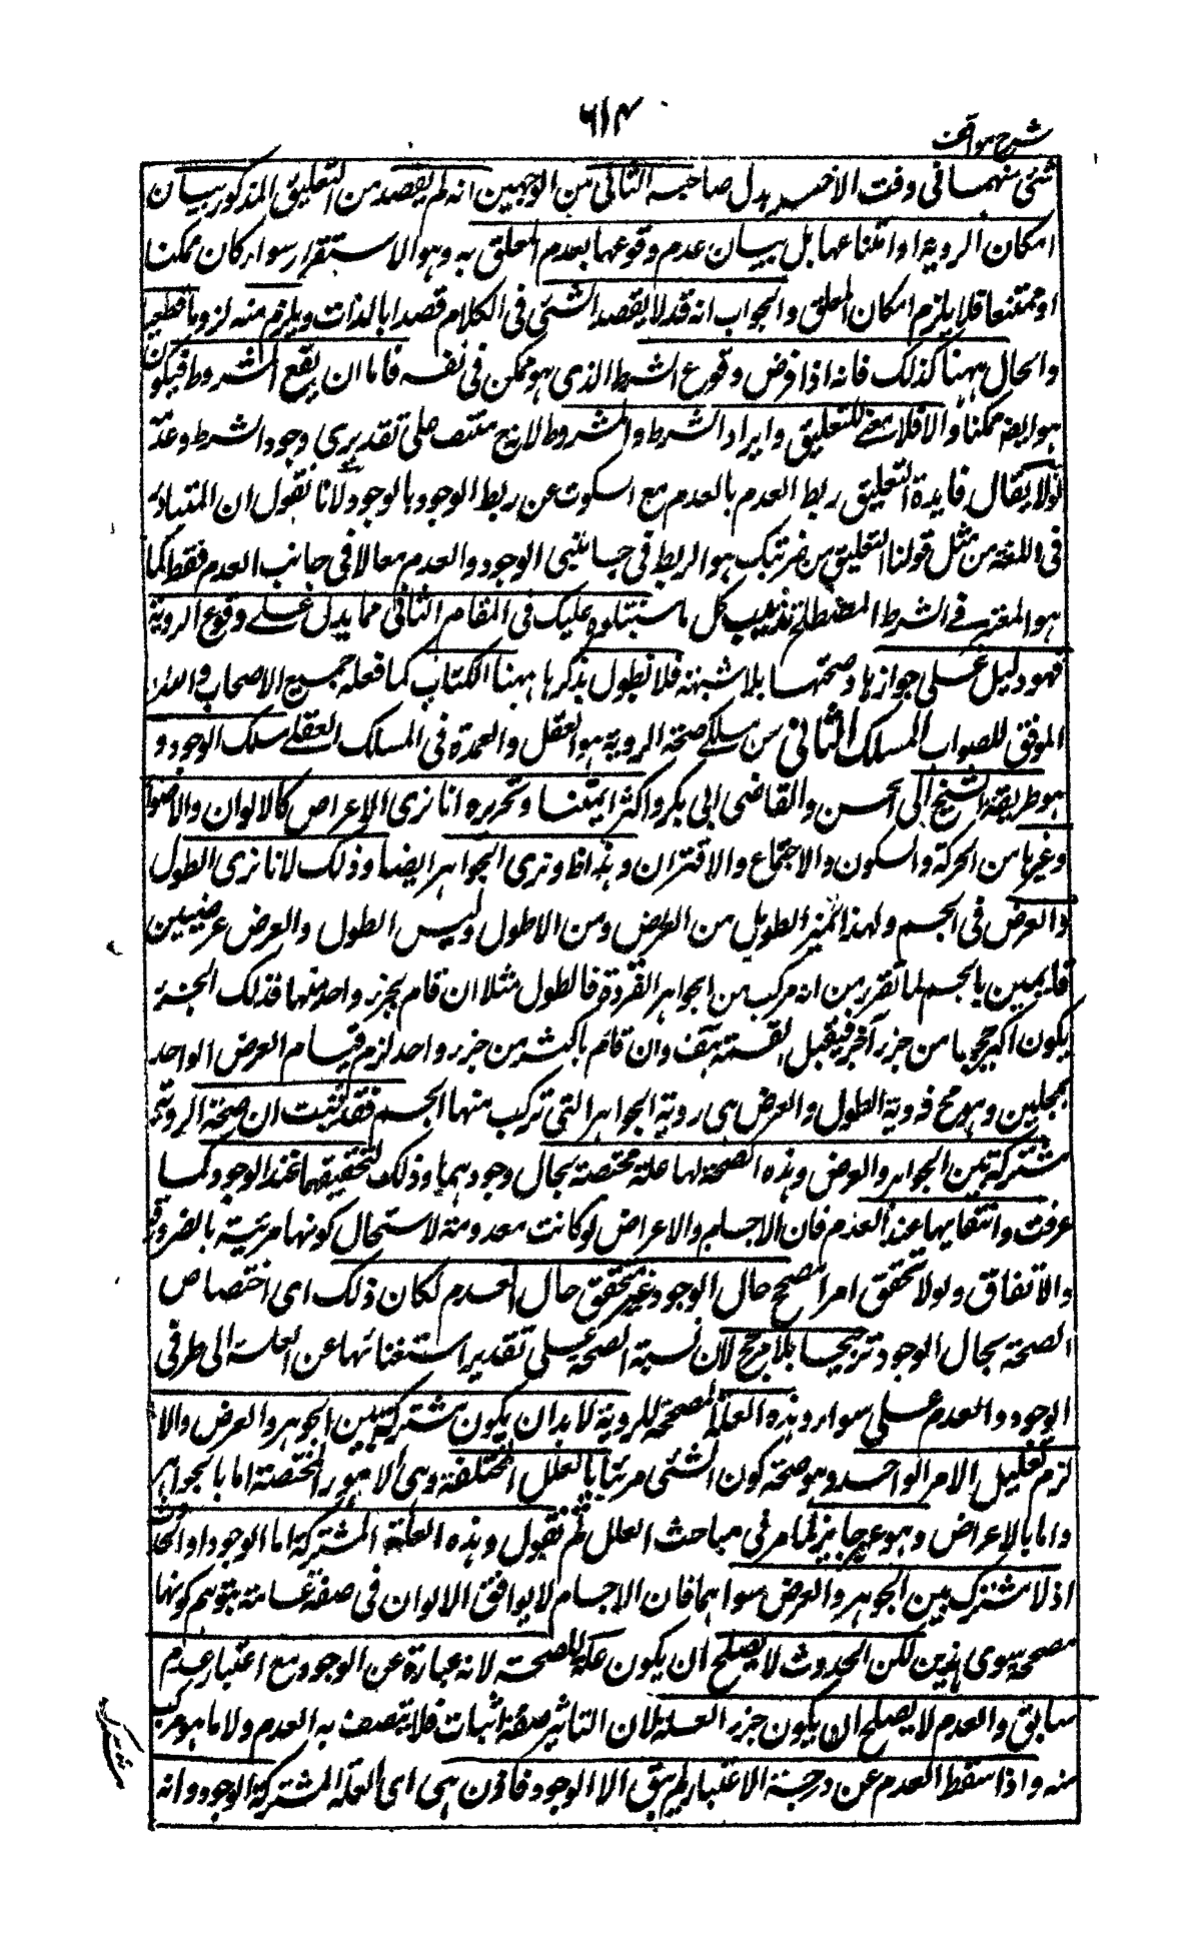 ٦١٤
شرح مواقف
شئ منهما فى وقت الاخر بدل صاحبه الثانى من الوجهين انه لم يقصد من التعليق المذكور بيان
امكان الروية او امتناعها بل بيان عدم وقوعها بعدم المعلق به وهو الاستقرار سواء كان ممكنا
او ممتنعا فلا يلزم امكان المعلق والجواب انه قد لا يقصد الشئ فى الكلام قصدا بالذات ويلزم منه لزوما قطعيا
والحال ههنا كذلك فانه اذا فرض وقوع الشرط الذى هو ممكن فى نفسه فاما ان يقع المشروط فيكون
هو ايضه ممكنا والا فلا معنے للتعليق وايراد الشرط والمشروط لانه ح منتف على تقديرى وجود الشرط وعدمه
لا يقال فايدة التعليق ربط العدم بالعدم مع السكوت عن ربط الوجود بالوجود لانا نقول ان المتبادر
فى اللغة من مثل قولنا ان ضربتنى ضربتك هو الربط فى جانبى الوجود والعدم معا لا فى جانب العدم فقط كما
هو المعتبر فے الشرط المصطلح تذنيب كل ما سنتلوه عليك فى المقام الثانى مما يدل علے وقوع الروية
فهو دليل على جوازها وصحتها بلا شبهة فلا نطول بذكرها ههنا الكتاب كما فعله جميع الاصحاب والله
الموفق للصواب المسلك الثانى من مسلكے صحة الروية هو العقل والعمدة فى المسلك العقلے مسلك الوجود و
هو طريقة الشيخ ابى الحسن والقاضى ابى بكر واكثر ايمتنا وتحريره انا نرى الاعراض كالالوان والاضواء
وغيرها من الحركة والسكون والاجتماع والافتراق وهذا ظ ونرى الجواهر ايضا وذلك لانا نرى الطول
والعرض فى الجسم ولهذا نميز الطويل من العريض ومن الاطول وليس الطول والعرض عرضيين
قايمين بالجسم لما تقرر من انه مركب من الجواهر الفردة فالطول مثلا ان قام بجزء واحد منها فذلك الجزء
يكون اكبر حجما من جزء آخر فيقبل القسمة هف وان قام باكثر من جزء واحد لزم قيام العرض الواحد
بمحلين وهو مح فروية الطول والعرض هى روية الجواهر التى تركب منها الجسم فقد ثبت ان صحة الروية
مشتركة بين الجواهر والعرض وهذه الصحة لها علة مختصة بحال وجودهما وذلك لتحققهما عند الوجود كما
عرفت وانتفايها عند العدم فان الاجسام والاعراض لو كانت معدومة لاستحال كونها مرئية بالضرورة
والاتفاق ولولا تحقق امر مصحح حال الوجود غير متحقق حال العدم لكان ذلك اى اختصاص
الصحة بحال الوجود ترجيحا بلا مرجح لان نسبة الصحة على تقدير استغنائها عن العلة الى طرفى
الوجود والعدم على سواء وهذه العلة المصححة للروية لا بد ان يكون مشتركة بين الجوهر والعرض والا
لزم تعليل الامر الواحد وهو صحة كون الشئ مرئيا بالعلل المختلفة وهى الامور المختصة اما بالجواهر
واما بالاعراض وهو غير جايز لما مر فى مباحث العلل ثم نقول وهذه العلة المشتركة اما الوجود او الحدوث
اذ لا مشترك بين الجوهر والعرض سواهما فان الاجسام لا يوافق الالوان فى صفة عامة يتوهم كونها
مصححه سوى هذين لكن الحدوث لا يصلح ان يكون علة للصحة لانه عبارة عن الوجود مع اعتبار عدم
سابق والعدم لا يصلح ان يكون جزء العلة لان التاثير صفة اثبات فلا يتصف به العدم ولا ما هو مركب
منه واذا سقط العدم عن درجة الاعتبار لم يبق الا الوجود فاذن هى اى العلة المشتركة الوجود وانه